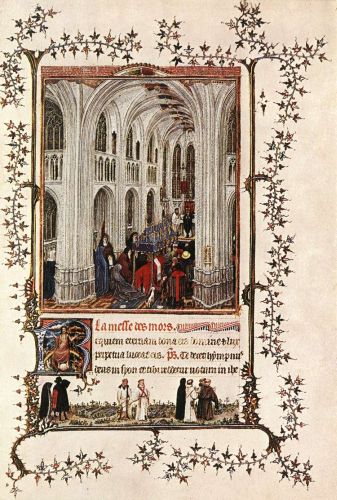 La messe des mors.
equiem eternam dona eis domine et lux
perpetua luceat eis. Ps. Te decet hymnus
deus in syon et tibi reddetur votum in ihe